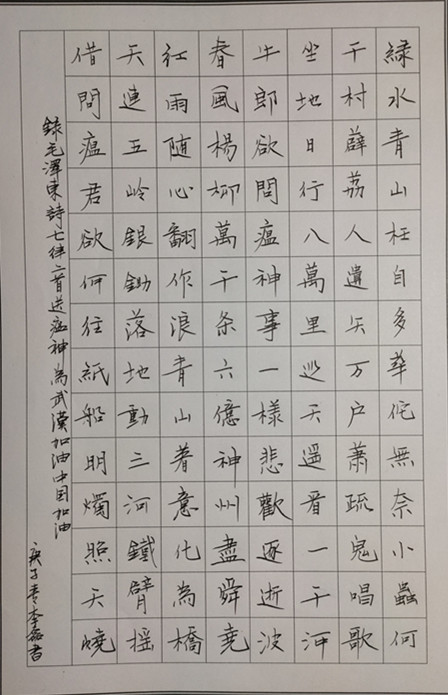 綠水青山枉自多華佗無奈小蟲何
千村薜荔人遺矢万户蕭疏鬼唱歌
坐地日行八萬里巡天遥看一千河
牛郎欲問瘟神事一樣悲歡逐逝波
春風楊柳萬千条六億神州盡舜堯
红雨随心翻作浪青山著意化為橋
天連五岭銀鋤落地動三河鐵臂摇
借問瘟君欲何往紙船明燭照天燒
錄毛澤東詩七律二首送瘟神為武漢加油中国加油
庚子春李磊書